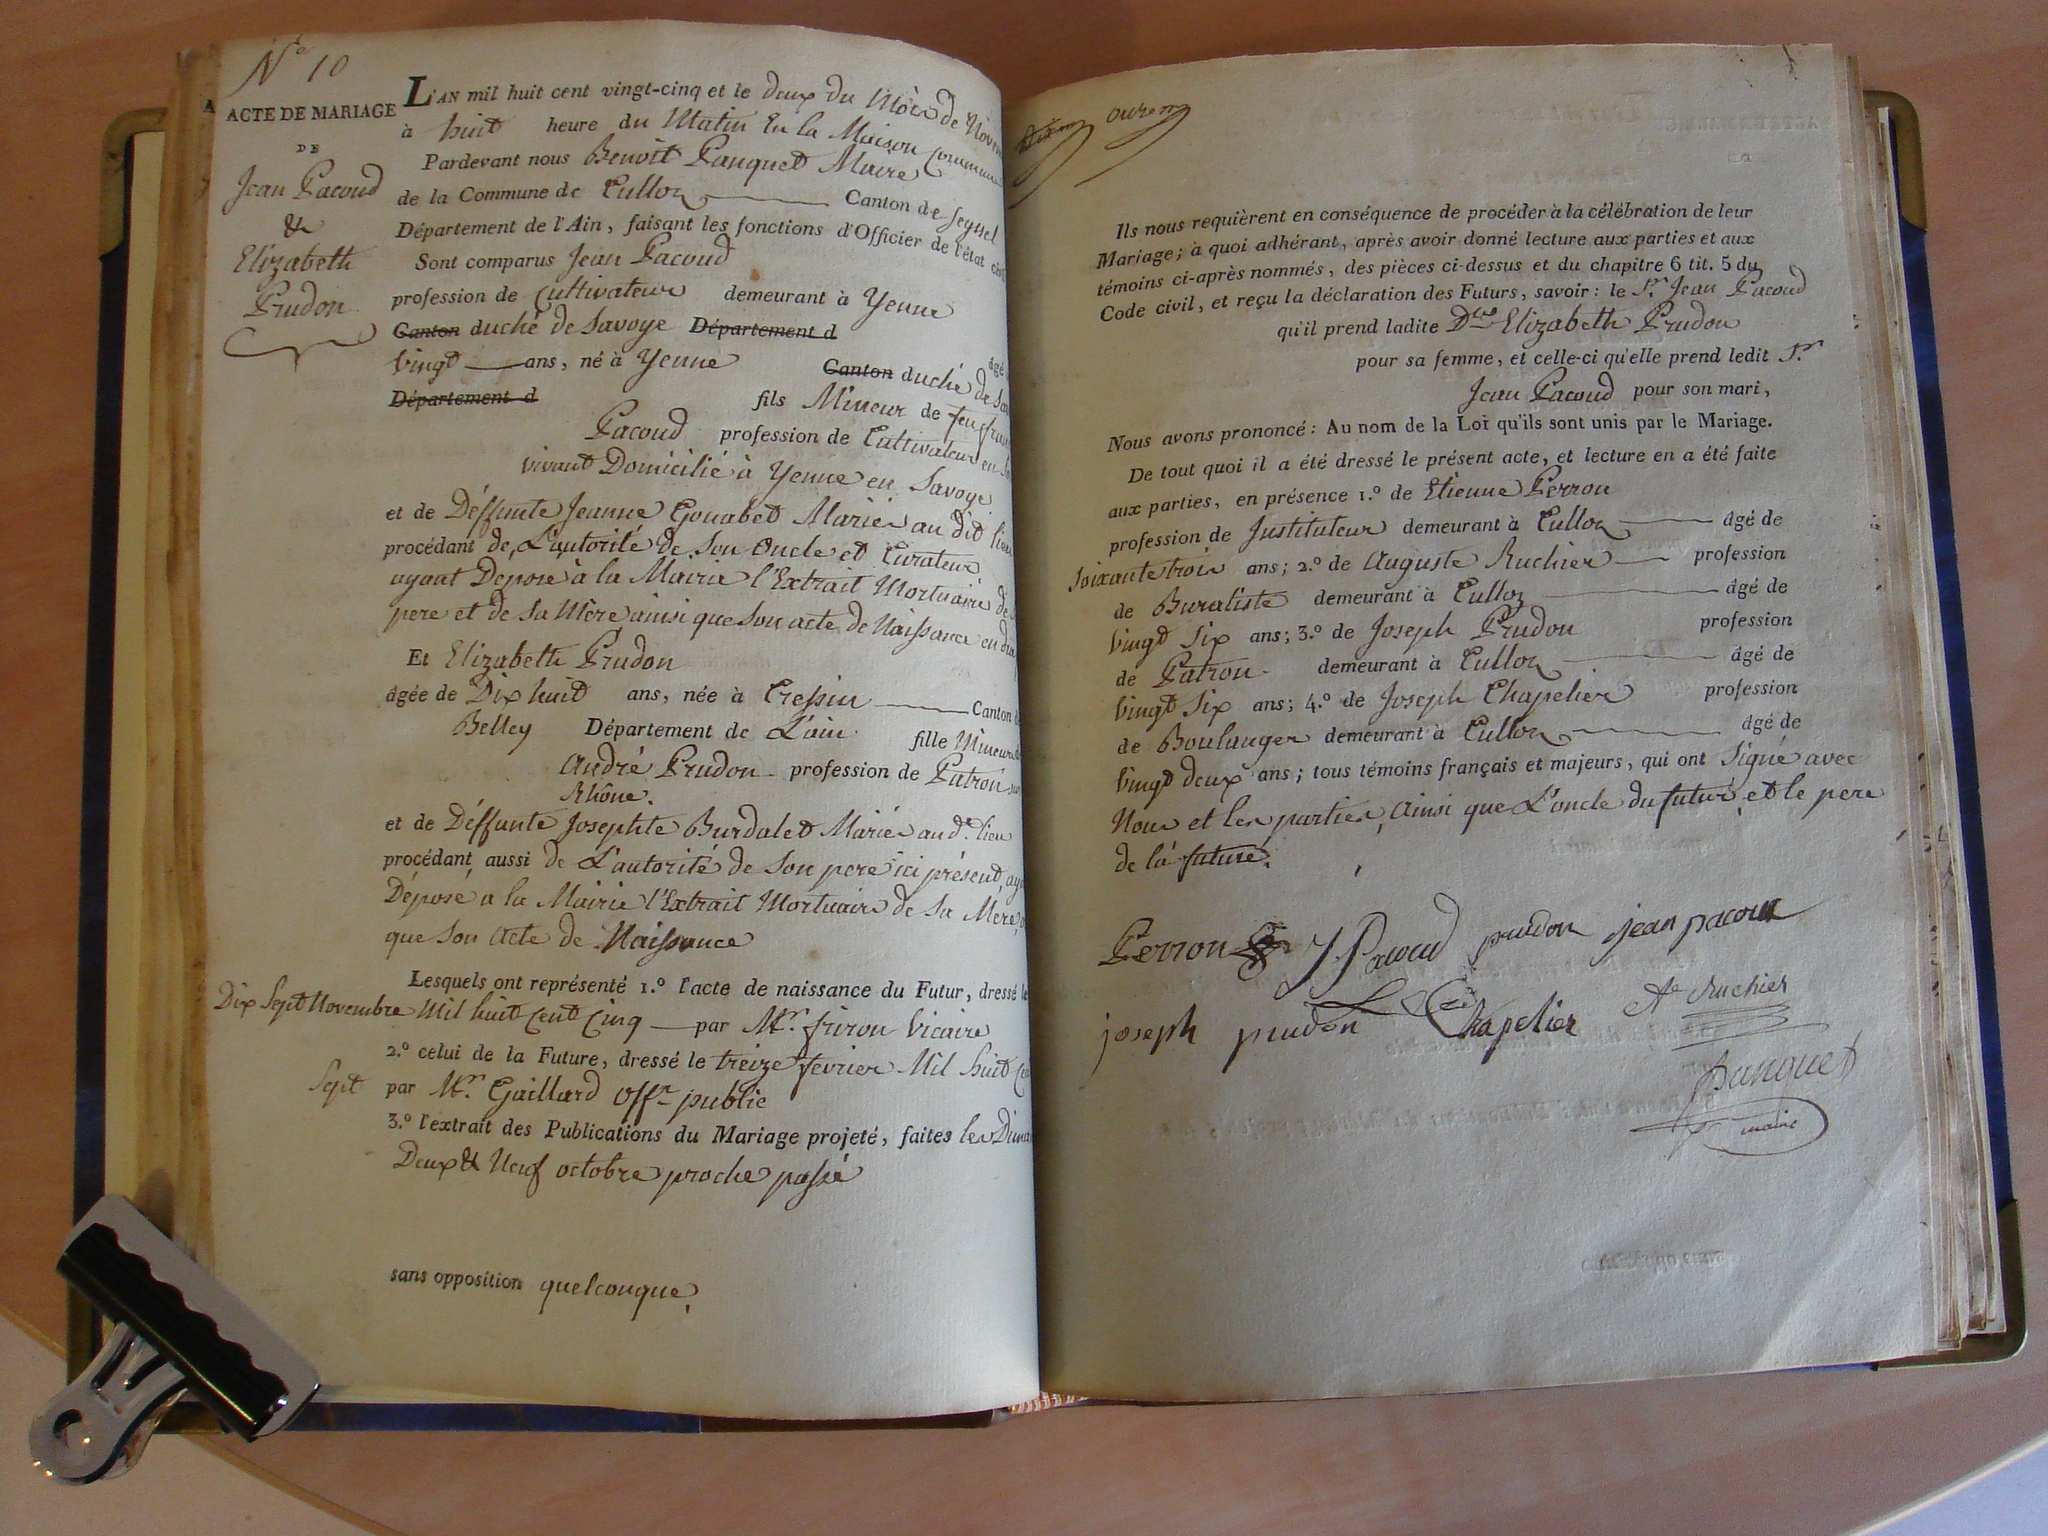 N° 10
ACTE DE MARIAGE
DE
Jean Pacoud
&
Elizabeth
Prudon
L'AN mil huit cent vingt-cinq et le deux du Mois de
à huit heure du Matin En la Maison
Pardevant nous Benoit Panquet Maire
de la Commune de Culloz Canton de Seyssel
Département de l'Ain, faisant les fonctions d'Officier de l'état
Sont comparus Jean Pacoud
profession de Cultivateur demeurant à Yenne
Canton duché de Savoye Département d
âgé
vingt ans, né à Yenne Canton duché de
Département d fils Mineur de feu
Pacoud profession de Cultivateur en Son
vivant Domicilié à Yenne en Savoye
et de Déffunte Jeanne Gouabet Mariés au dit lieu
procédant de L'autorité de Son Oncle et Curateur
ayant Deposé à la Mairie l'Extrait Mortuaire de
pere et de Sa Mère ainsi que Son acte de Naissance en
Et Elizabeth Prudon
âgée de Dix huit ans, née à Cressin Canton de
Belley Département de L'ain fille Mineure
André Prudon profession de Patron sur
Rhône.
et de Déffunte Josephte Burdalet Mariés au d.t lieu
procédant aussi de L'autorité de Son pere ici présent,
Déposé a la Mairie l'Extrait Mortuaire de Sa Mere,
que Son Acte de Naissance
Lesquels ont représenté 1.° l'acte de naissance du Futur, dressé le
Dix Sept Novembre Mil huit Cent Cinq par Mr. friron Vicaire
2.° celui de la Future, dressé le treize fevrier Mil huit
Sept par Mr. Gaillard Off.r public
3.° l'extrait des Publications du Mariage projeté, faites les
Deux & Neuf octobre proche passé
sans opposition quelconque,
Ils nous requièrent en conséquence de procéder à la célébration de leur
Mariage; à quoi adhérant, après avoir donné lecture aux parties et aux
témoins ci-après nommés, des pièces ci-dessus et du chapitre 6 tit. 5 du
Code civil, et reçu la déclaration des Futurs, savoir: le S.r Jean Pacoud
qu'il prend ladite D.lle Elizabeth Prudon
pour sa femme, et celle-ci qu'elle prend ledit S.r
Jean Pacoud pour son mari,
Nous avons prononcé: Au nom de la Loi qu'ils sont unis par le Mariage.
De tout quoi il a été dressé le présent acte, et lecture en a été faite
aux parties, en présence 1.° de Etienne Perron
profession de Instituteur demeurant à Culloz âgé de
Soixante trois ans; 2.° de Auguste Ruchier profession
de Buraliste demeurant à Culloz âgé de
Vingt Six ans; 3.° de Joseph Prudon profession
de Patron demeurant à Culloz âgé de
Vingt Six ans; 4.° de Joseph Chapelier profession
de Boulanger demeurant à Culloz âgé de
Vingt deux ans; tous témoins français et majeurs, qui ont Signé avec
Nous et les parties, Ainsi que L'oncle du futur, et le pere
de la future.
Perron J Pacoud prudon jean pacoud
joseph prudon Chapelier A.te Ruchier
Panquet
maire